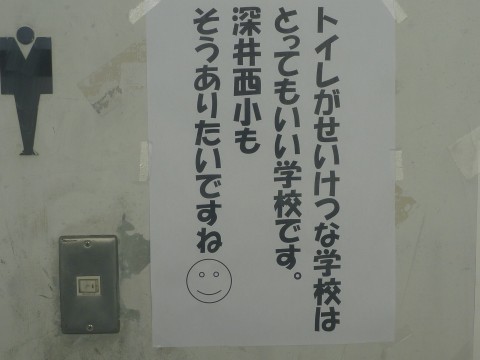 トイレがせいけつな学校は
とってもいい学校です。
深井西小も
そうありたいですね